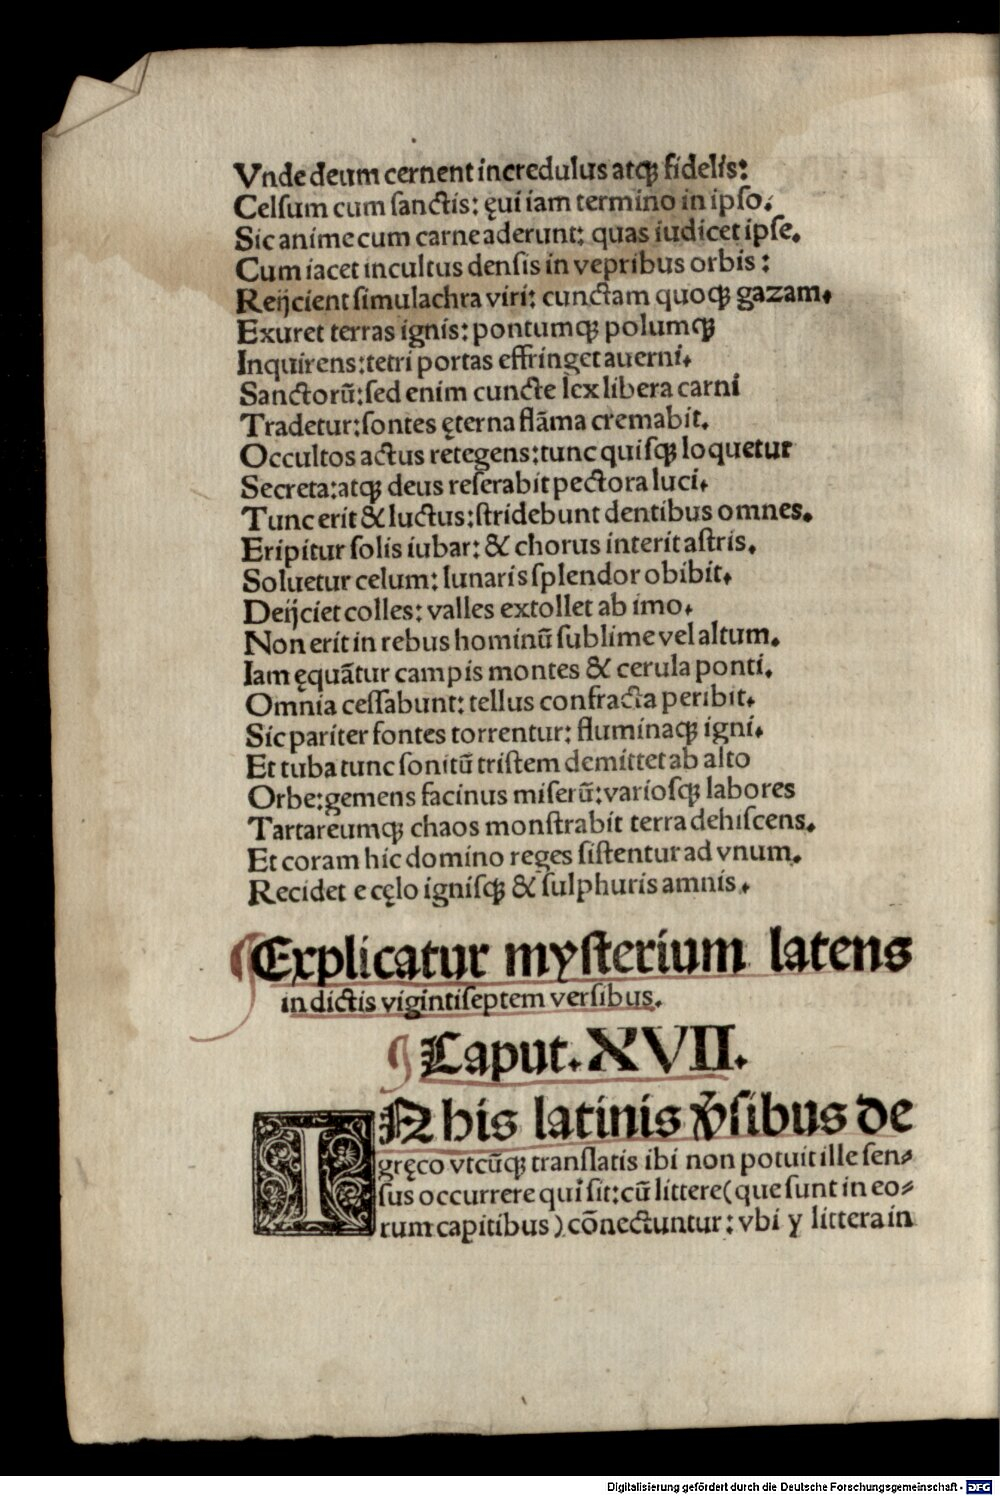 Vnde deum cernent incredulus atqꝫ fidelis:
Celsum cum sanctis: ęui iam termino in ipso.
Sic anime cum carne aderunt: quas iudicet ipse.
Cum iacet incultus densis in vepribus orbis:
Reijcient simulachra viri: cunctam quoqꝫ gazam.
Exuret terras ignis: pontumqꝫ polumqꝫ
Inquirens: tetri portas effringet auerni.
Sanctorū: sed enim cuncte lex libera carni
Tradetur: sontes ęterna flāma cremabit.
Occultos actus retegens: tunc quisqꝫ loquetur
Secreta: atqꝫ deus reserabit pectora luci.
Tunc erit & luctus: stridebunt dentibus omnes.
Eripitur solis iubar: & chorus interit astris.
Soluetur celum: lunaris splendor obibit.
Deijciet colles: valles extollet ab imo.
Non erit in rebus hominū sublime vel altum.
Iam ęquātur campis montes & cerula ponti.
Omnia cessabunt: tellus confracta peribit.
Sic pariter fontes torrentur: fluminaqꝫ igni.
Et tuba tunc sonitū tristem demittet ab alto
Orbe: gemens facinus miserū: variosqꝫ labores
Tartareumqꝫ chaos monstrabit terra dehiscens.
Et coram hic domino reges sistentur ad vnum.
Recidet e cęlo ignisqꝫ & sulphuris amnis.
¶Explicatur mysterium latens
in dictis vigintiseptem versibus.
¶Caput. XVII.
IN his latinis v̄sibus de
gręco vtcūqꝫ translatis ibi non potuit ille sen⸗
sus occurrere qui sit: cū littere (que sunt in eo⸗
rum capitibus) cōnectuntur: vbi y littera in
Digitalisierung gefördert durch die Deutsche Forschungsgemeinschaft - DFG